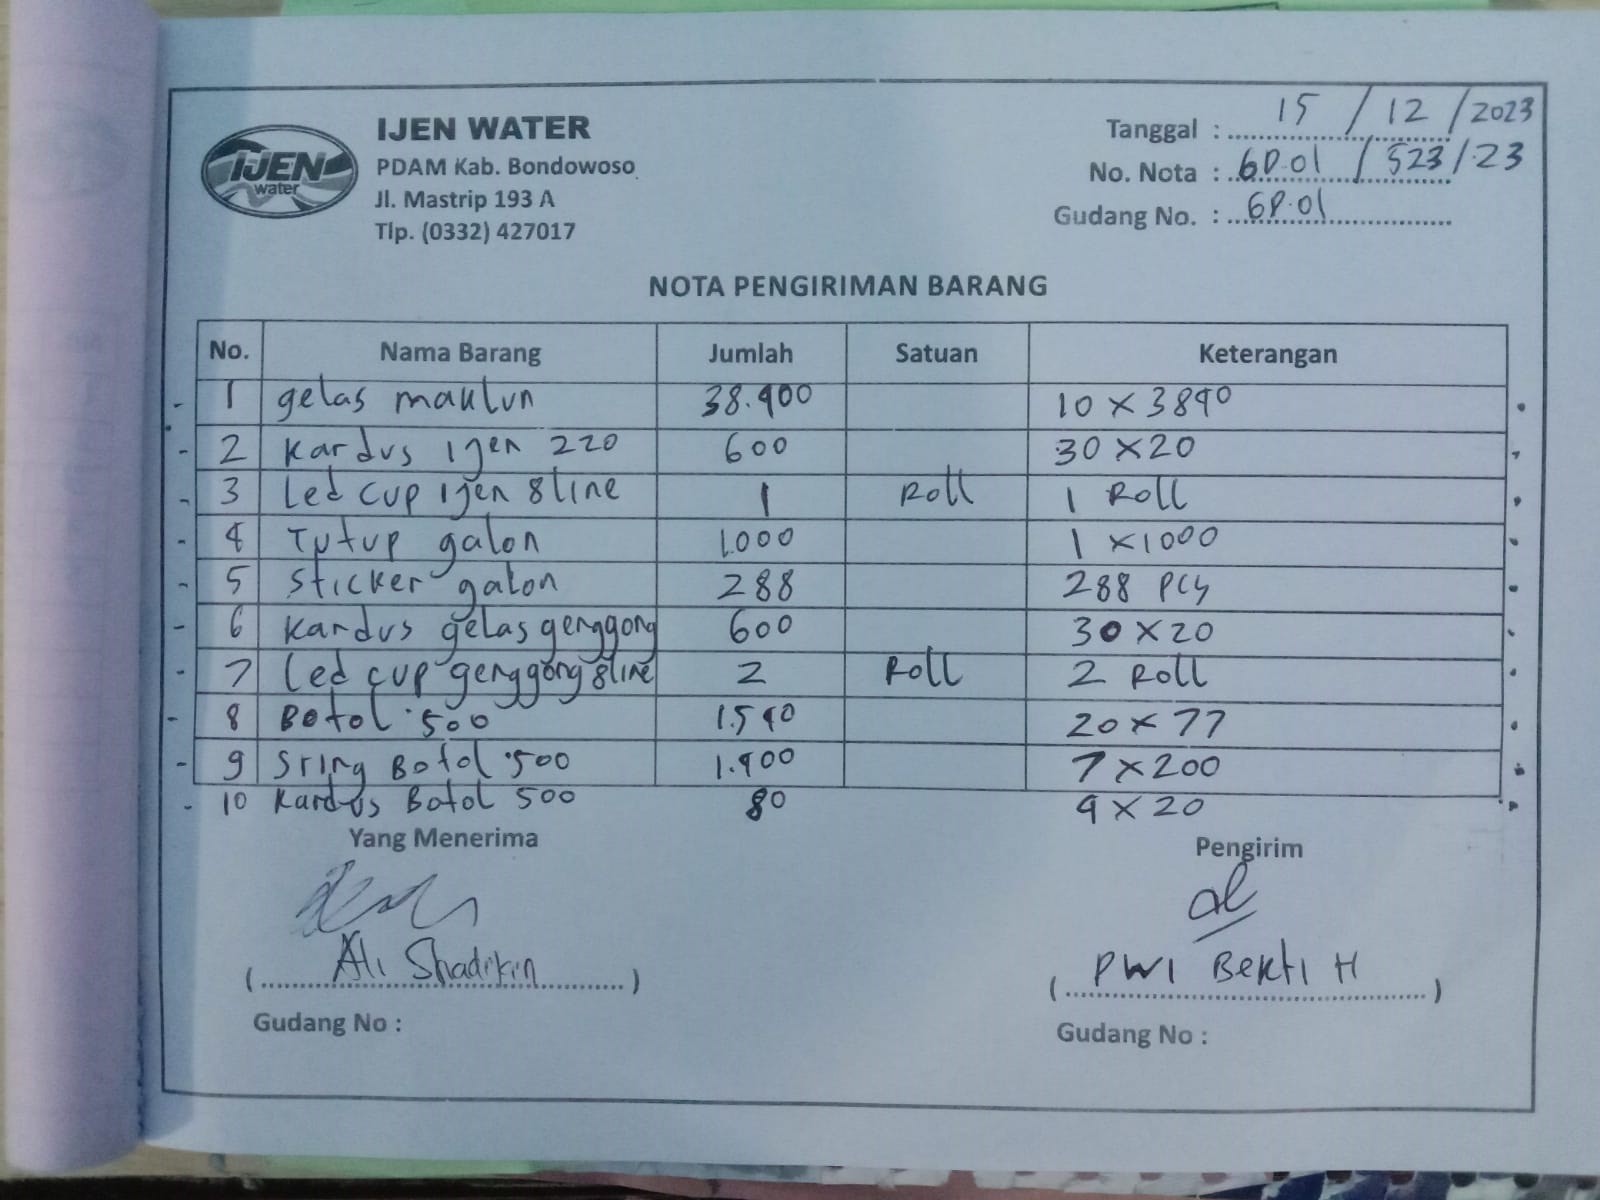 IJEN
water
IJEN WATER
PDAM Kab. Bondowoso
Jl. Mastrip 193 A
Tlp. (0332) 427017
Tanggal : 15 / 12 / 2023
No. Nota : GD.01 / 523 / 23
Gudang No. : GD.01
NOTA PENGIRIMAN BARANG
No. Nama Barang Jumlah Satuan Keterangan
1 gelas maklun 38.400 10 x 3840
2 Kardus Ijen 220 600 30 x 20
3 Led cup Ijen 8 line 1 Roll 1 Roll
4 Tutup galon 1.000 1 x 1000
5 Sticker galon 288 288 pcs
6 Kardus gelas genggong 600 30 x 20
7 Led cup genggong 8 line 2 Roll 2 Roll
8 Botol 500 1.540 20 x 77
9 Sring Botol 500 1.400 7 x 200
10 Kardus Botol 500 80 4 x 20
Yang Menerima Pengirim
( Ali Shadikin ) ( DWI Bekti H )
Gudang No : Gudang No :